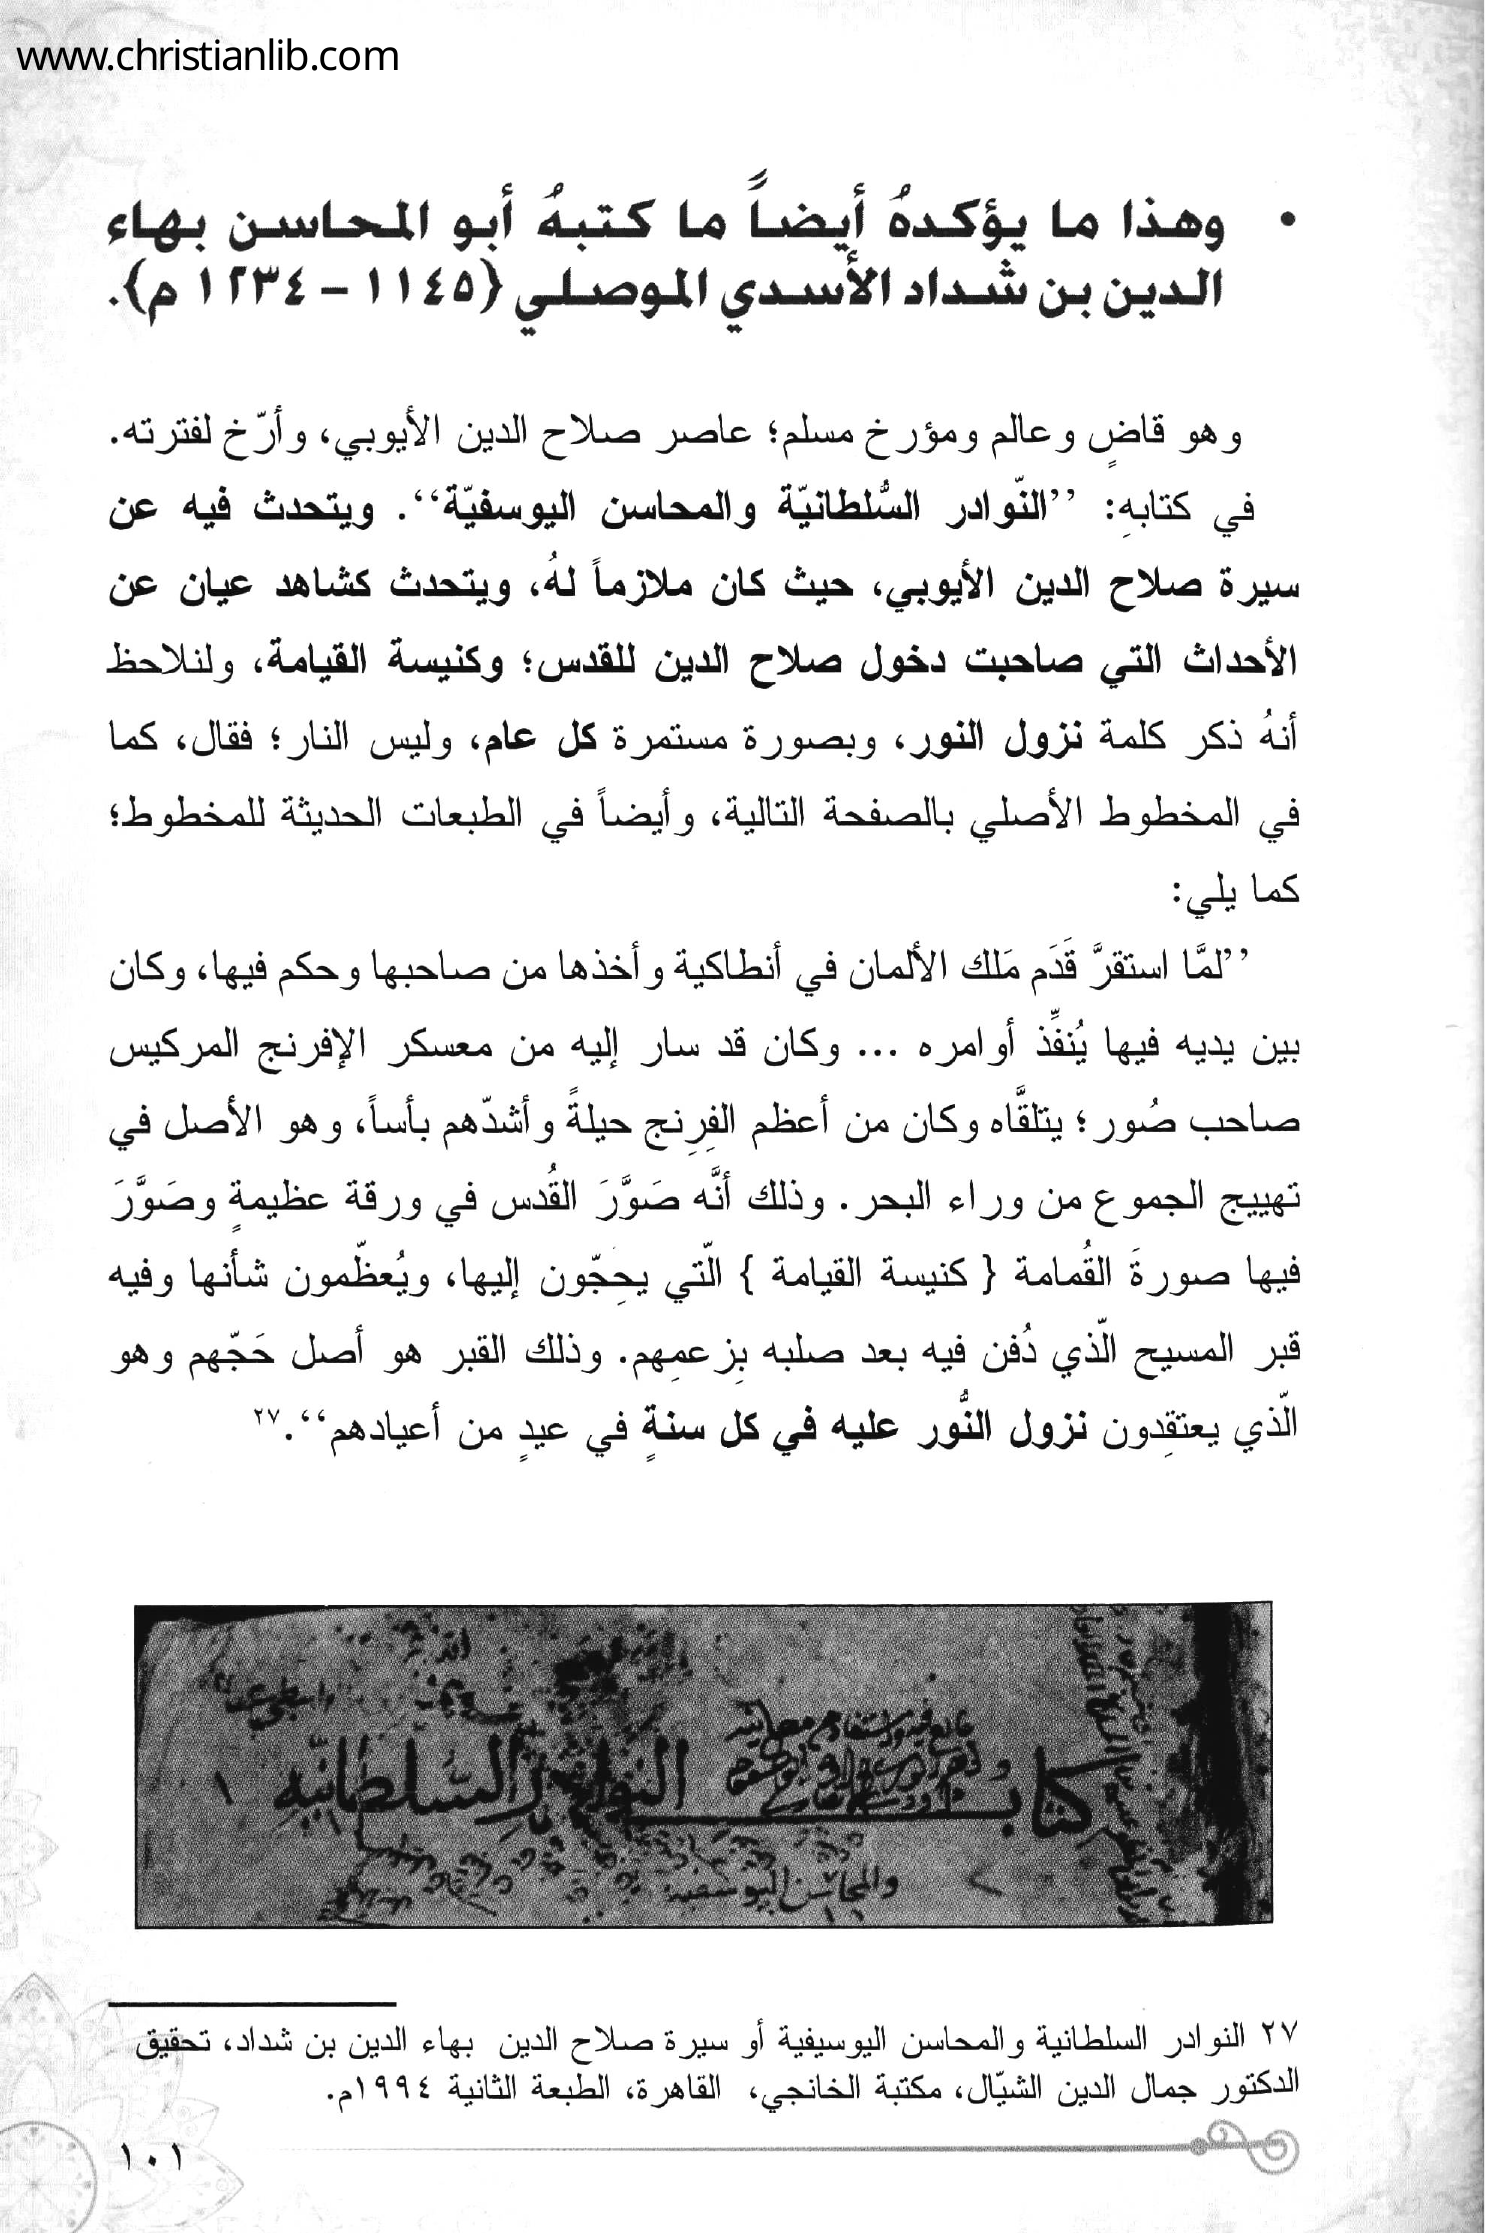 www.christianlib.com
• وهذا ما يؤكدهُ أيضاً ما كتبهُ أبو المحاسن بهاء
الدين بن شداد الأسدي الموصلي (١١٤٥ – ١٢٣٤ م).
وهو قاضٍ وعالم ومؤرخ مسلم؛ عاصر صلاح الدين الأيوبي، وأرّخ لفترته.
في كتابهِ: ’’النّوادر السُّلطانيّة والمحاسن اليوسفيّة‘‘. ويتحدث فيه عن
سيرة صلاح الدين الأيوبي، حيث كان ملازماً لهُ، ويتحدث كشاهد عيان عن
الأحداث التي صاحبت دخول صلاح الدين للقدس؛ وكنيسة القيامة، ولنلاحظ
أنهُ ذكر كلمة نزول النور، وبصورة مستمرة كل عام، وليس النار؛ فقال، كما
في المخطوط الأصلي بالصفحة التالية، وأيضاً في الطبعات الحديثة للمخطوط؛
كما يلي:
’’لمَّا استقرَّ قَدَم مَلك الألمان في أنطاكية وأخذها من صاحبها وحكم فيها، وكان
بين يديه فيها يُنفِّذ أوامره ... وكان قد سار إليه من معسكر الإفرنج المركيس
صاحب صُور؛ يتلقَّاه وكان من أعظم الفِرِنج حيلةً وأشدّهم بأساً، وهو الأصل في
تهييج الجموع من وراء البحر. وذلك أنَّه صَوَّرَ القُدس في ورقة عظيمةٍ وصَوَّرَ
فيها صورةَ القُمامة { كنيسة القيامة } الّتي يحِجّون إليها، ويُعظّمون شأنها وفيه
قبر المسيح الّذي دُفن فيه بعد صلبه بِزعمِهم. وذلك القبر هو أصل حَجّهم وهو
الّذي يعتقِدون نزول النُّور عليه في كل سنةٍ في عيدٍ من أعيادهم‘‘.٢٧
كتاب النوادر السلطانية
والمحاسن اليوسفية
٢٧ النوادر السلطانية والمحاسن اليوسيفية أو سيرة صلاح الدين بهاء الدين بن شداد، تحقيق
الدكتور جمال الدين الشيّال، مكتبة الخانجي، القاهرة، الطبعة الثانية ١٩٩٤م.
١٠١